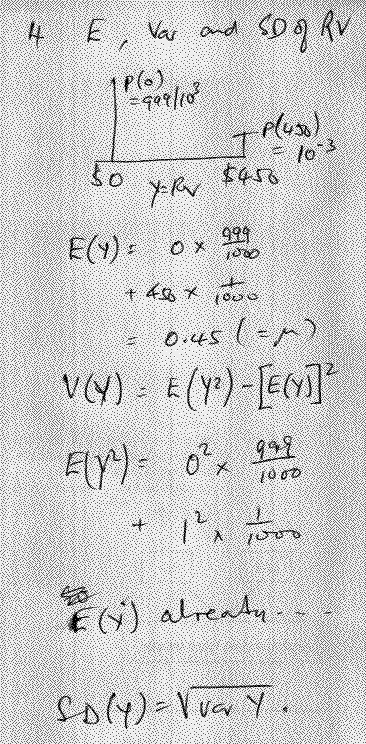 4 E, Var and SD of RV
P(0)
= 999/10³
P(450)
= 10⁻³
$0 Y=RV $450
E(Y) = 0 × 999/1000
+ 450 × 1/1000
= 0.45 (= μ)
V(Y) = E(Y²) - [E(Y)]²
E(Y²) = 0² × 999/1000
+ 1² × 1/1000
E(Y) already - - - -
SD(Y) = √var Y.